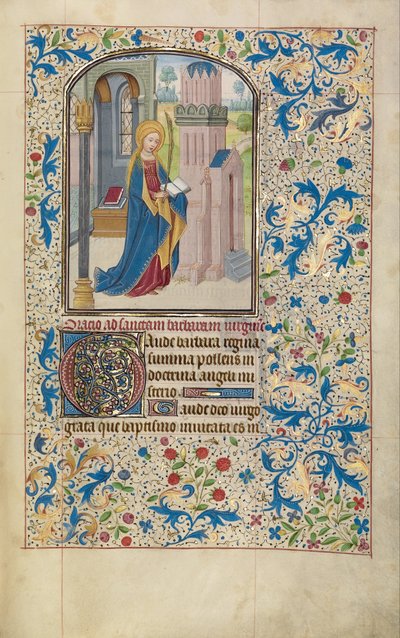 Oracio ad sanctam barbaram virginē
Gaude barbara regina
summa pollens in
doctrina angeli mi
sterio.
Gaude deo virgo
grata que baptismo imitata es in